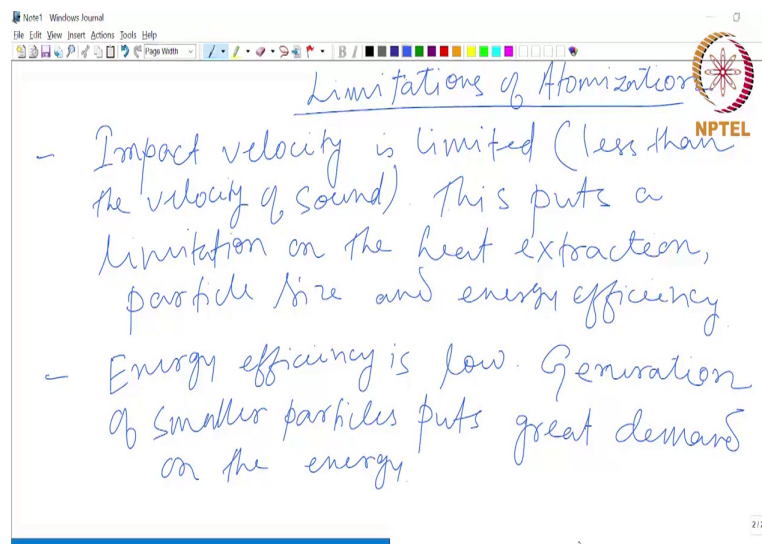 Note1 - Windows Journal
File Edit View Insert Actions Tools Help
Page Width
B I
Limitations of Atomization
NPTEL
- Impact velocity is limited (less than
the velocity of sound). This puts a
limitation on the heat extraction,
particle size and energy efficiency.
- Energy efficiency is low. Generation
of smaller particles puts great demand
on the energy.
2/2